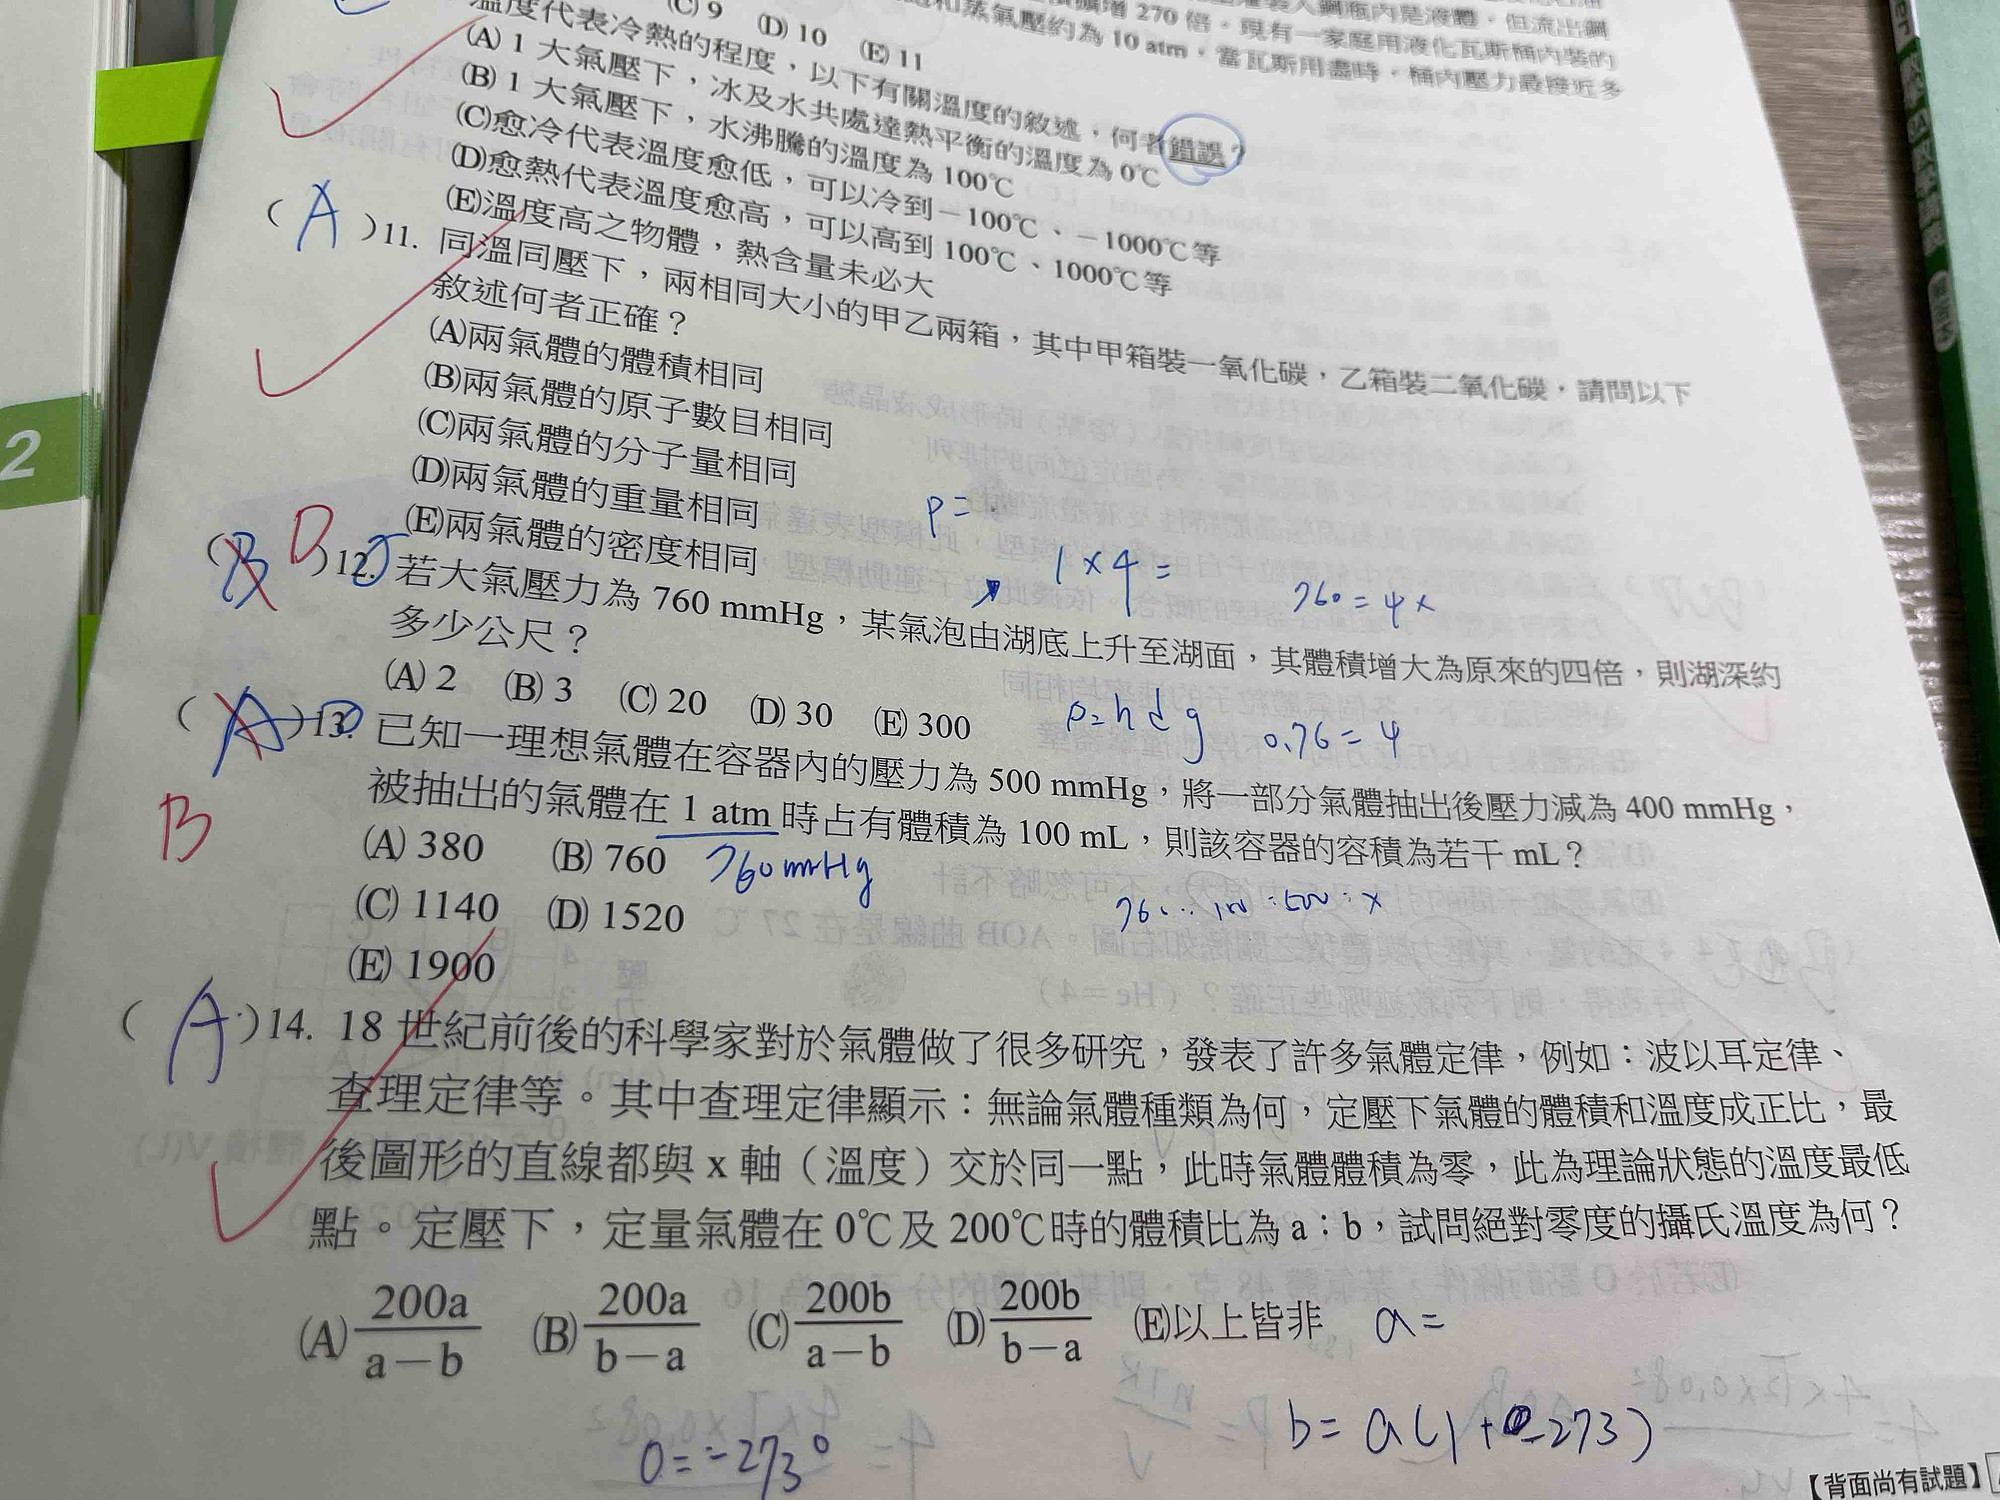 增270倍。現有一家庭用液化瓦斯桶內裝的
和蒸氣壓約為 10 atm,當瓦斯用盡時,桶內壓力最接近多
(C) 9 (D) 10 (E) 11
溫度代表冷熱的程度,以下有關溫度的敘述,何者錯誤?
(A) 1 大氣壓下,冰及水共處達熱平衡的溫度為 0℃
(B) 1 大氣壓下,水沸騰的溫度為 100℃
(C)愈冷代表溫度愈低,可以冷到-100℃、-1000℃等
(D)愈熱代表溫度愈高,可以高到 100℃、1000℃等
(E)溫度高之物體,熱含量未必大
( A )11. 同溫同壓下,兩相同大小的甲乙兩箱,其中甲箱裝一氧化碳,乙箱裝二氧化碳,請問以下
敘述何者正確?
(A)兩氣體的體積相同
(B)兩氣體的原子數目相同
(C)兩氣體的分子量相同
(D)兩氣體的重量相同
(E)兩氣體的密度相同
P=
1×4=
760=4x
( B D )12. 若大氣壓力為 760 mmHg,某氣泡由湖底上升至湖面,其體積增大為原來的四倍,則湖深約
多少公尺?
(A) 2 (B) 3 (C) 20 (D) 30 (E) 300
P=hdg 0.76=4
( A )13. 已知一理想氣體在容器內的壓力為 500 mmHg,將一部分氣體抽出後壓力減為 400 mmHg,
B
被抽出的氣體在 1 atm 時占有體積為 100 mL,則該容器的容積為若干 mL?
(A) 380 (B) 760
760mmHg
(C) 1140 (D) 1520
(E) 1900
( A )14. 18 世紀前後的科學家對於氣體做了很多研究,發表了許多氣體定律,例如:波以耳定律、
查理定律等。其中查理定律顯示:無論氣體種類為何,定壓下氣體的體積和溫度成正比,最
後圖形的直線都與 x 軸(溫度)交於同一點,此時氣體體積為零,此為理論狀態的溫度最低
點。定壓下,定量氣體在 0℃及 200℃時的體積比為 a:b,試問絕對零度的攝氏溫度為何?
(A) 200a/a-b (B) 200a/b-a (C) 200b/a-b (D) 200b/b-a (E)以上皆非
a=
0=-273°
【背面尚有試題】
2